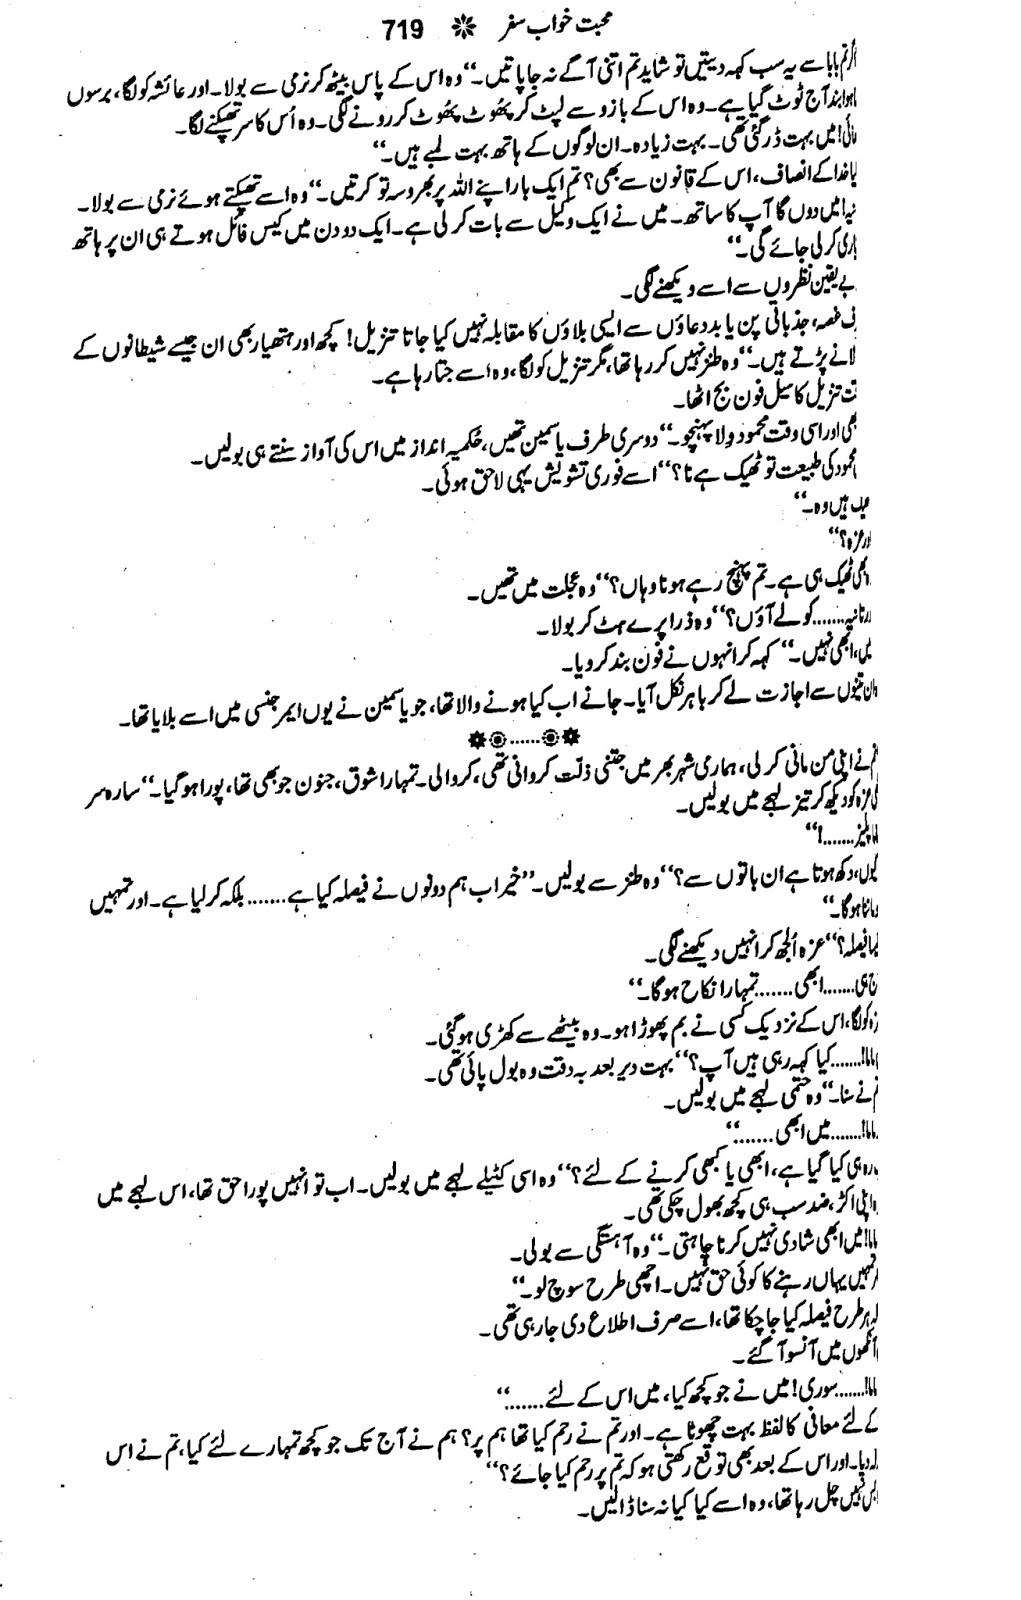 محبت خواب سفر ❋ 719
اگر تم بابا سے یہ سب کہہ دیتیں تو شاید تم اتنی آگے نہ جا پاتیں۔‘‘ وہ اس کے پاس بیٹھ کر نرمی سے بولا۔ اور عائشہ کو لگا، برسوں
بند آج ٹوٹ گیا ہے۔ وہ اس کے بازو سے لپٹ کر پھُوٹ پھُوٹ کر رونے لگی۔ وہ اُس کا سر تھپکنے لگا۔
میں بہت ڈر گئی تھی۔ بہت زیادہ۔ ان لوگوں کے ہاتھ بہت لمبے ہیں۔‘‘
خدا کے انصاف، اس کے قانون سے بھی؟ تم ایک بار اپنے اللہ پر بھروسہ تو کرتیں۔‘‘ وہ اسے تھپکتے ہوئے نرمی سے بولا۔
میں دوں گا آپ کا ساتھ۔ میں نے ایک وکیل سے بات کر لی ہے۔ ایک دو دن میں کیس فائل ہوتے ہی ان پر ہاتھ
کر لی جائے گی۔‘‘
بے یقین نظروں سے اسے دیکھنے لگی۔
غصہ، جذباتی پن یا بددعاؤں سے ایسی بلاؤں کا مقابلہ نہیں کیا جاتا تنزیل! کچھ اور ہتھیار بھی ان جیسے شیطانوں کے
لانے پڑتے ہیں۔‘‘ وہ طنز نہیں کر رہا تھا، مگر تنزیل کو لگا، وہ اسے جتا رہا ہے۔
تنزیل کا سیل فون بج اٹھا۔
بھی اور اسی وقت محمود ولا پہنچو۔‘‘ دوسری طرف یاسمین تھیں، حُکمیہ انداز میں اس کی آواز سنتے ہی بولیں۔
محمود کی طبیعت تو ٹھیک ہے نا؟‘‘ اسے فوری تشویش یہی لاحق ہوئی۔
ہیں وہ۔‘‘
عزہ؟‘‘
بھی ٹھیک ہی ہے۔ تم پہنچ رہے ہو نا وہاں؟‘‘ وہ عجلت میں تھیں۔
ثانیہ....... کو لے آؤں؟‘‘ وہ ذرا پرے ہٹ کر بولا۔
ابھی نہیں۔‘‘ کہہ کر انہوں نے فون بند کر دیا۔
ان تینوں سے اجازت لے کر باہر نکل آیا۔ جانے اب کیا ہونے والا تھا، جو یاسمین نے یوں ایمرجنسی میں اسے بلایا تھا۔
نے اپنی من مانی کر لی، ہماری شہر بھر میں جتنی ذلّت کروانی تھی، کروا لی۔ تمہارا شوق، جنون جو بھی تھا، پورا ہو گیا۔‘‘ سارہ سر
عزہ کو دیکھ کر تیز لہجے میں بولیں۔
پلیز.......!‘‘
کیوں، دکھ ہوتا ہے ان باتوں سے؟‘‘ وہ طنز سے بولیں۔ ’’خیر اب ہم دونوں نے فیصلہ کیا ہے....... بلکہ کر لیا ہے۔ اور تمہیں
ماننا ہوگا۔‘‘
فیصلہ؟‘‘ عزہ اُلجھ کر انہیں دیکھنے لگی۔
ہی....... ابھی....... تمہارا نکاح ہوگا۔‘‘
کو لگا، اس کے نزدیک کسی نے بم پھوڑا ہو۔ وہ بیٹھے سے کھڑی ہو گئی۔
ماما!....... کیا کہہ رہی ہیں آپ؟‘‘ بہت دیر بعد بہ دقت وہ بول پائی تھی۔
نے سنا۔‘‘ وہ حتمی لہجے میں بولیں۔
ماما!....... میں ابھی.......‘‘
ہی کیا گیا ہے، ابھی یا کبھی کرنے کے لئے؟‘‘ وہ اسی کٹیلے لہجے میں بولیں۔ اب تو انہیں پورا حق تھا، اس لہجے میں
اپنی اکڑ، ضد سب ہی کچھ بھول چکی تھی۔
ماما! میں ابھی شادی نہیں کرنا چاہتی۔‘‘ وہ آہستگی سے بولی۔
تمہیں یہاں رہنے کا کوئی حق نہیں۔ اچھی طرح سوچ لو۔‘‘
ہر طرح فیصلہ کیا جا چکا تھا، اسے صرف اطلاع دی جا رہی تھی۔
آنکھوں میں آنسو آ گئے۔
ماما!....... سوری! میں نے جو کچھ کیا، میں اس کے لئے.......‘‘
کے لئے معافی کا لفظ بہت چھوٹا ہے۔ اور تم نے رحم کیا تھا ہم پر؟ ہم نے آج تک جو کچھ تمہارے لئے کیا، تم نے اس
دیا۔ اور اس کے بعد بھی توقع رکھتی ہو کہ تم پر رحم کیا جائے؟‘‘
بس نہیں چل رہا تھا، وہ اسے کیا کیا نہ سنا ڈالیں۔